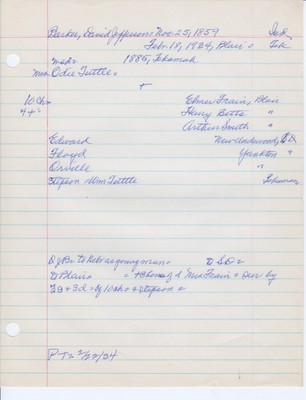 Barker, David Jefferson Nov. 25, 1859 Ind.
Feb. 18, 1924, Blair " Tek
mar. 1885, Tekamah
Mrs. Odie Tuttle "
+
10 Ch = Elmer Train, Blair
4 + = Henry Betts "
Arthur Smith "
Edward New Underwood, S.D.
Floyd Yankton "
Orville "
stepson Wm Tuttle Tekamah
to Nebr as young man = to S.D. =
to Blair = + home of d Mrs Train = Surv by
7 s + 3 d = of 10 ch + stepson =
P-T = 2/22/24